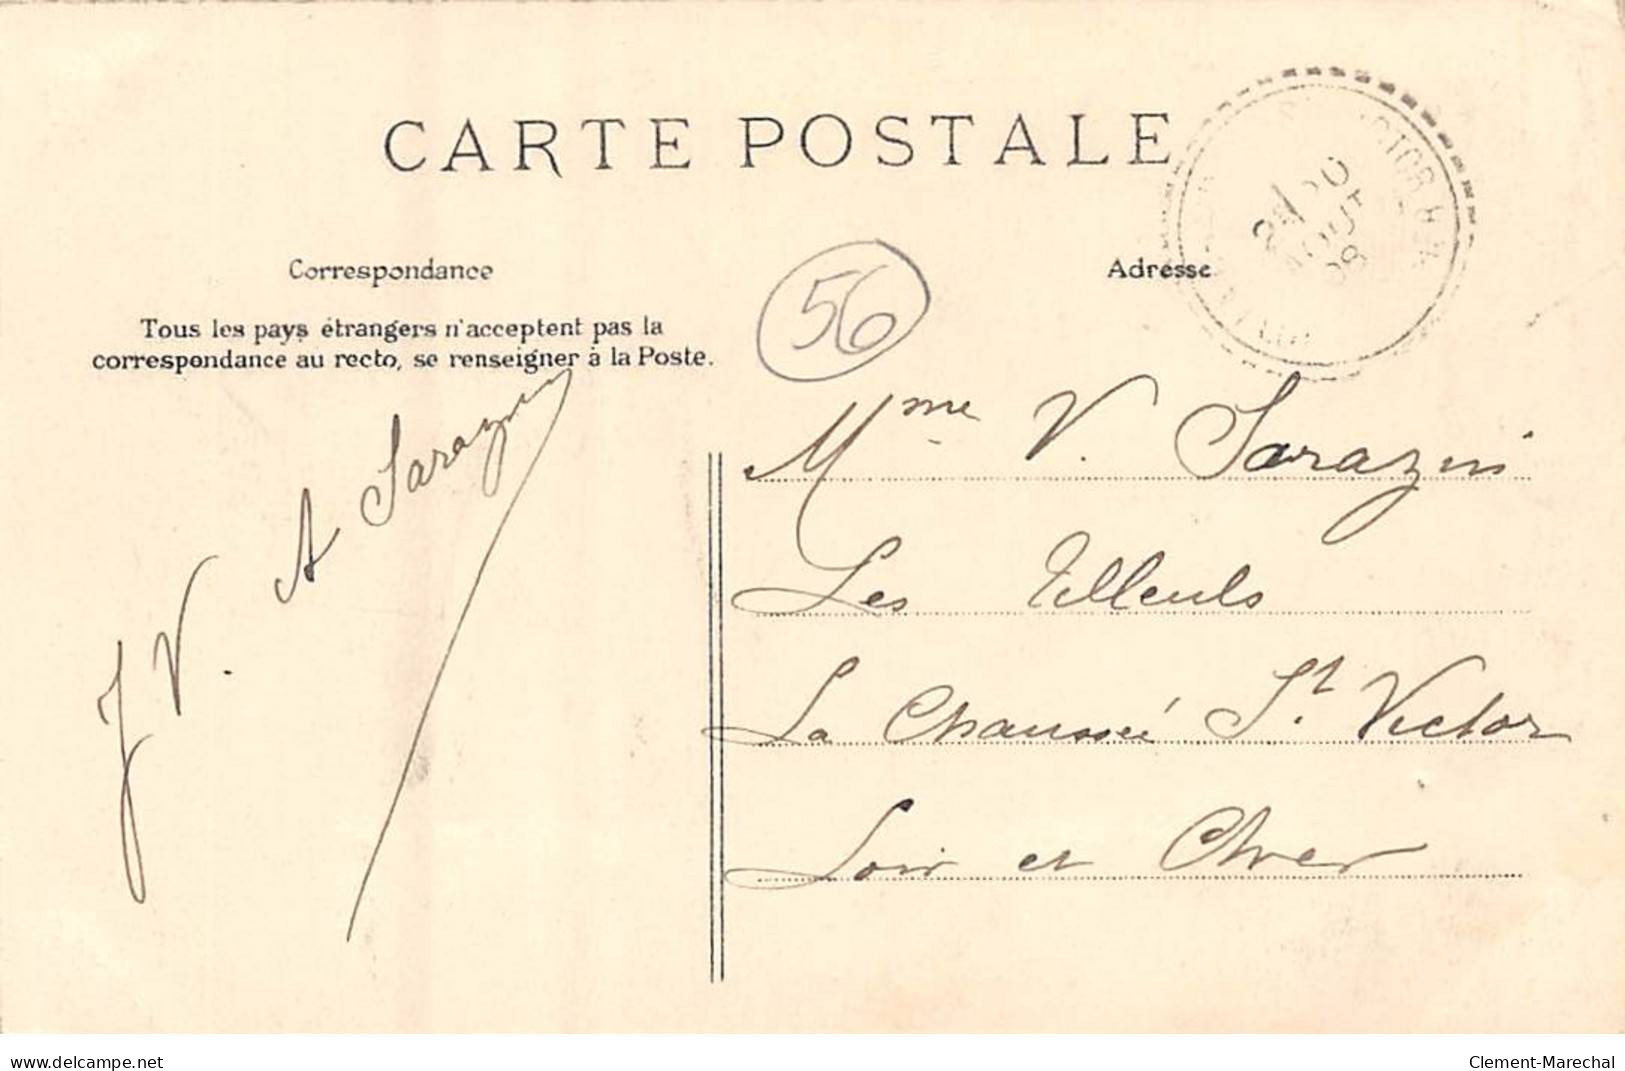 CARTE POSTALE
Correspondance
Tous les pays étrangers n'acceptent pas la
correspondance au recto, se renseigner à la Poste.
J V. A Sarazin
56
Adresse
AOUT
Mme V. Sarazin
Les Tilleuls
La Chaussée St. Victor
Loir et Cher
delcampe.net
Clement-Marechal